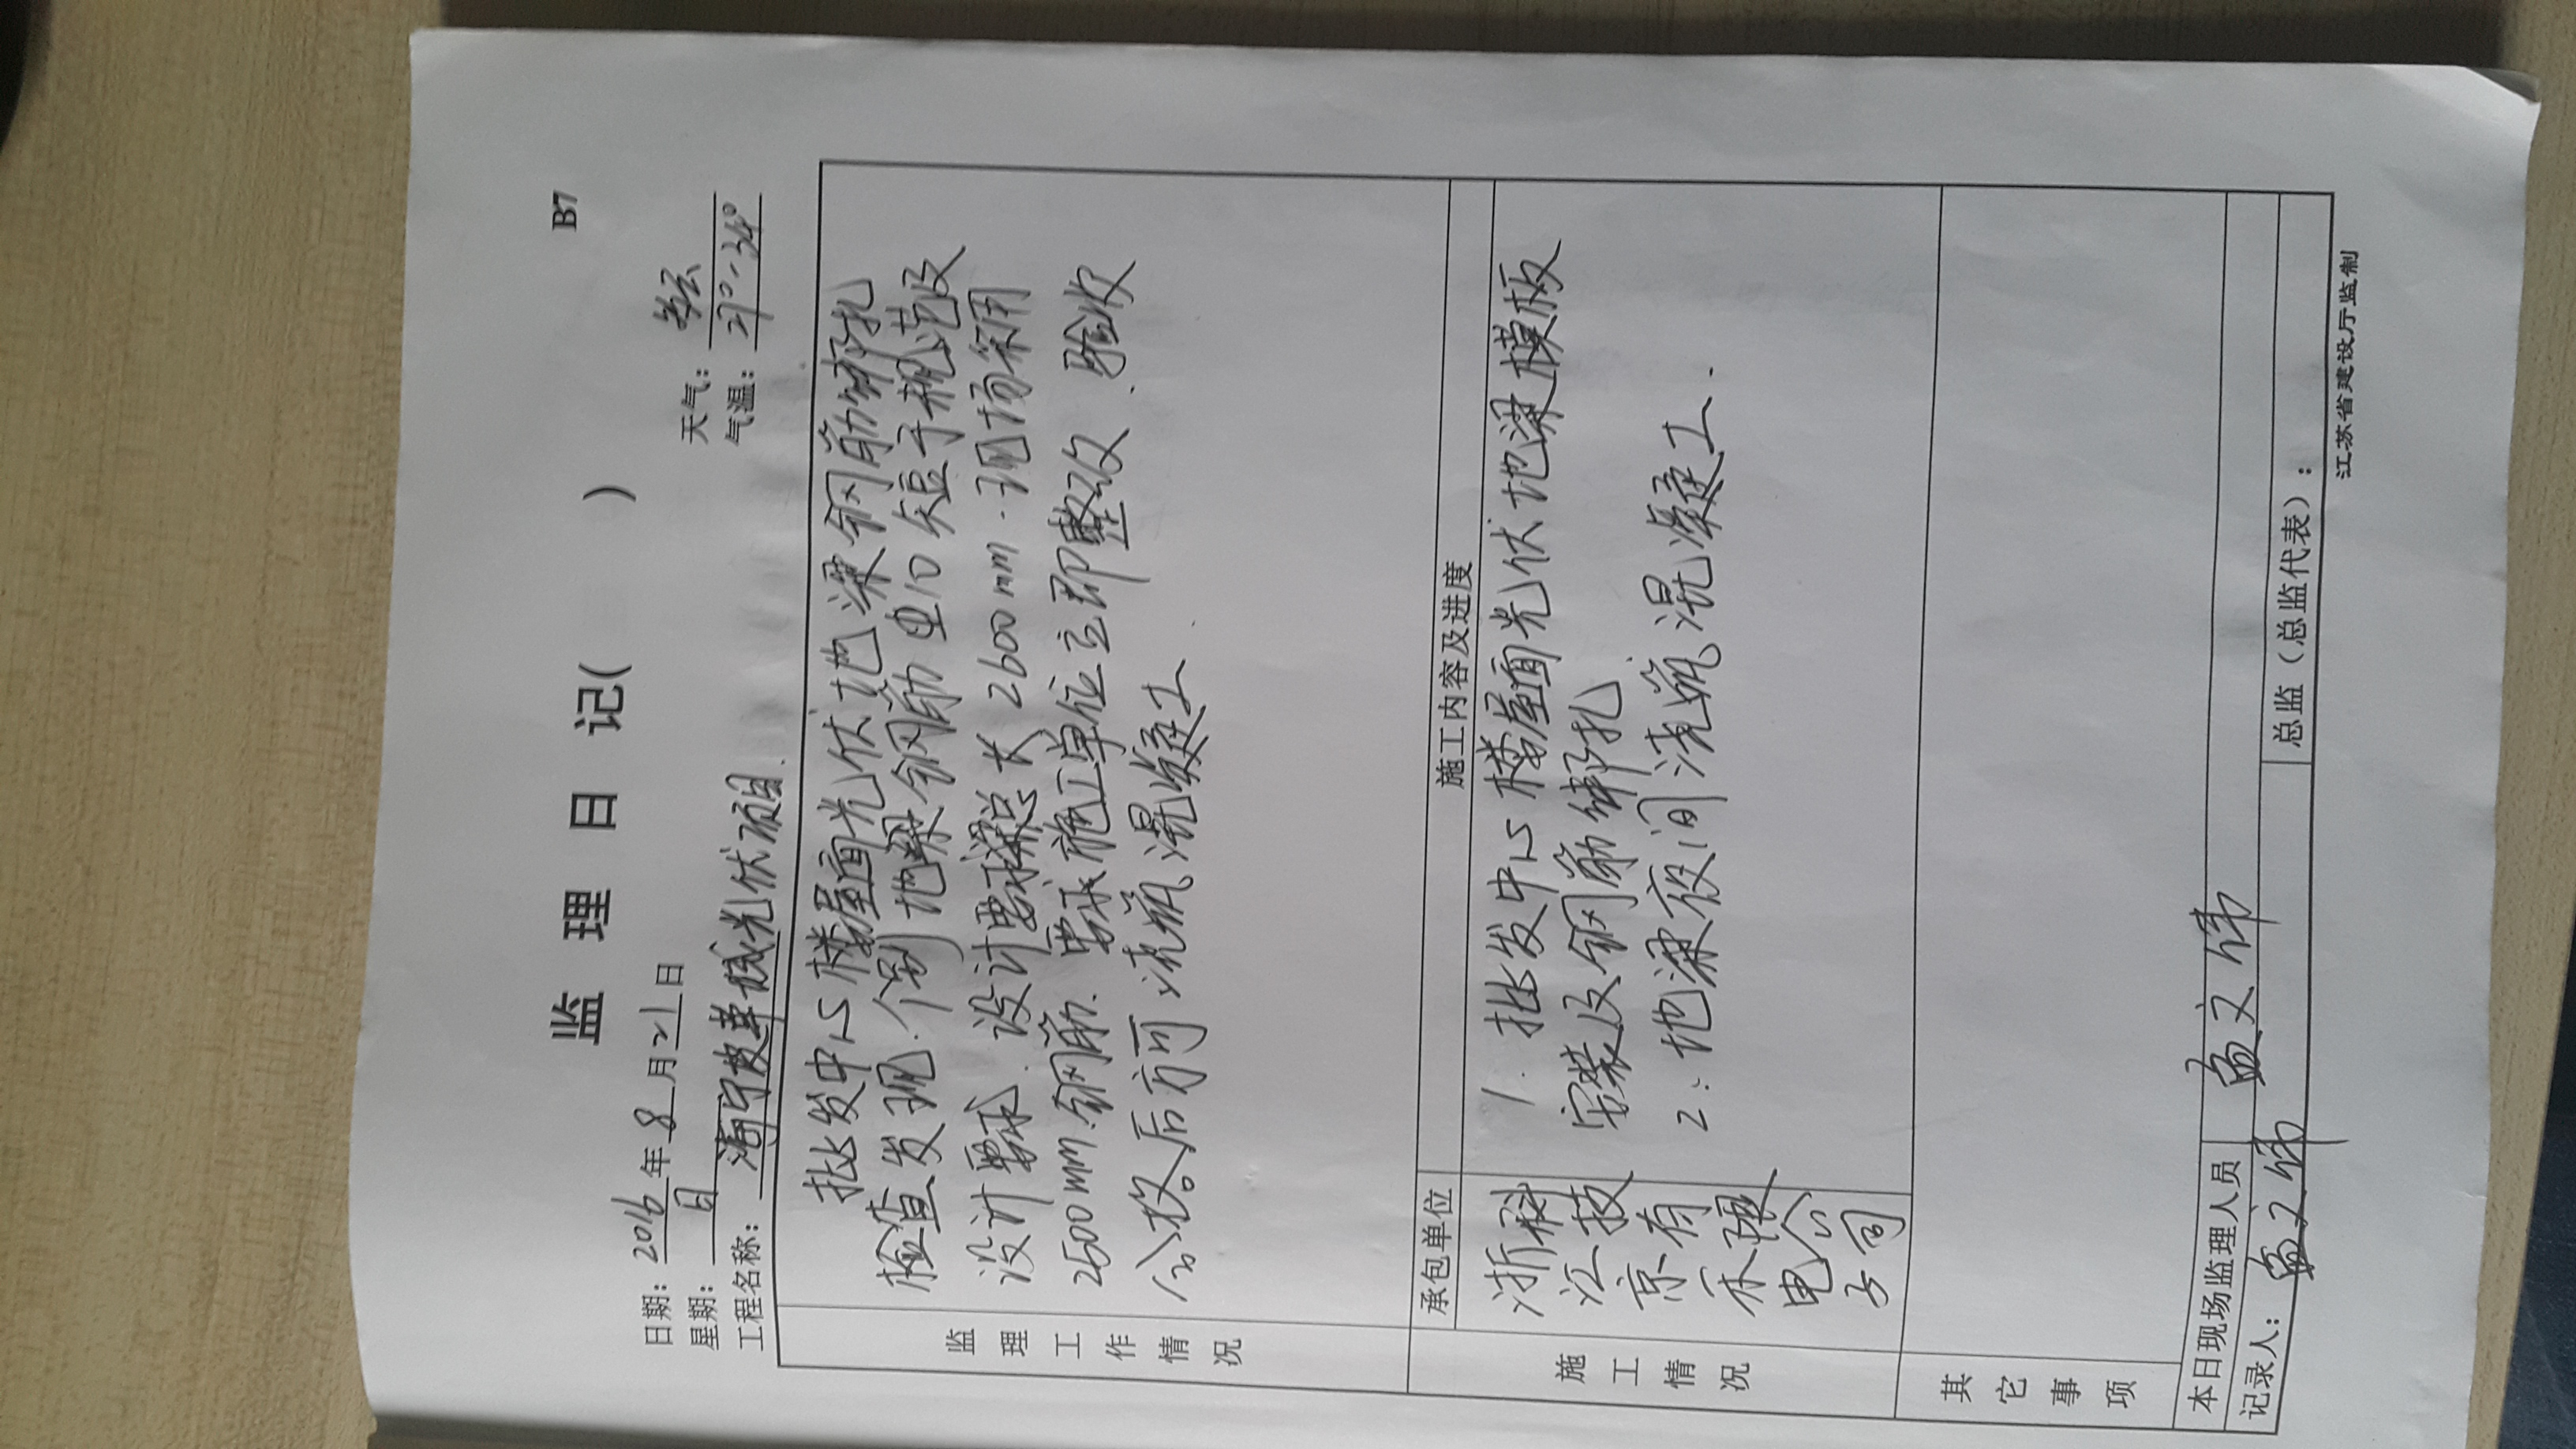 B7
监 理 日 记( )
日期: 2016 年 8 月 21 日 天气: 多云
星期: 日 气温: 27°-34°
工程名称: 海宁皮革城光伏项目.
监理工作情况
批发中心楼屋面光伏地梁钢筋绑扎
检查发现.个别地梁钢筋 10 短于规范及
设计要求.设计要求梁总长2600mm.现场采用
2500mm.钢筋.要求施工单位立即整改.验收
合格后方可浇筑混凝土
承包单位 施工内容及进度
施工情况
浙江京禾电子科技有限公司
1.批发中心楼屋面光伏地梁模板
安装及钢筋绑扎
2:地梁夜间浇筑混凝土.
其它事项
本日现场监理人员 孟文伟
记录人: 孟文伟 总监(总监代表):
江苏省建设厅监制